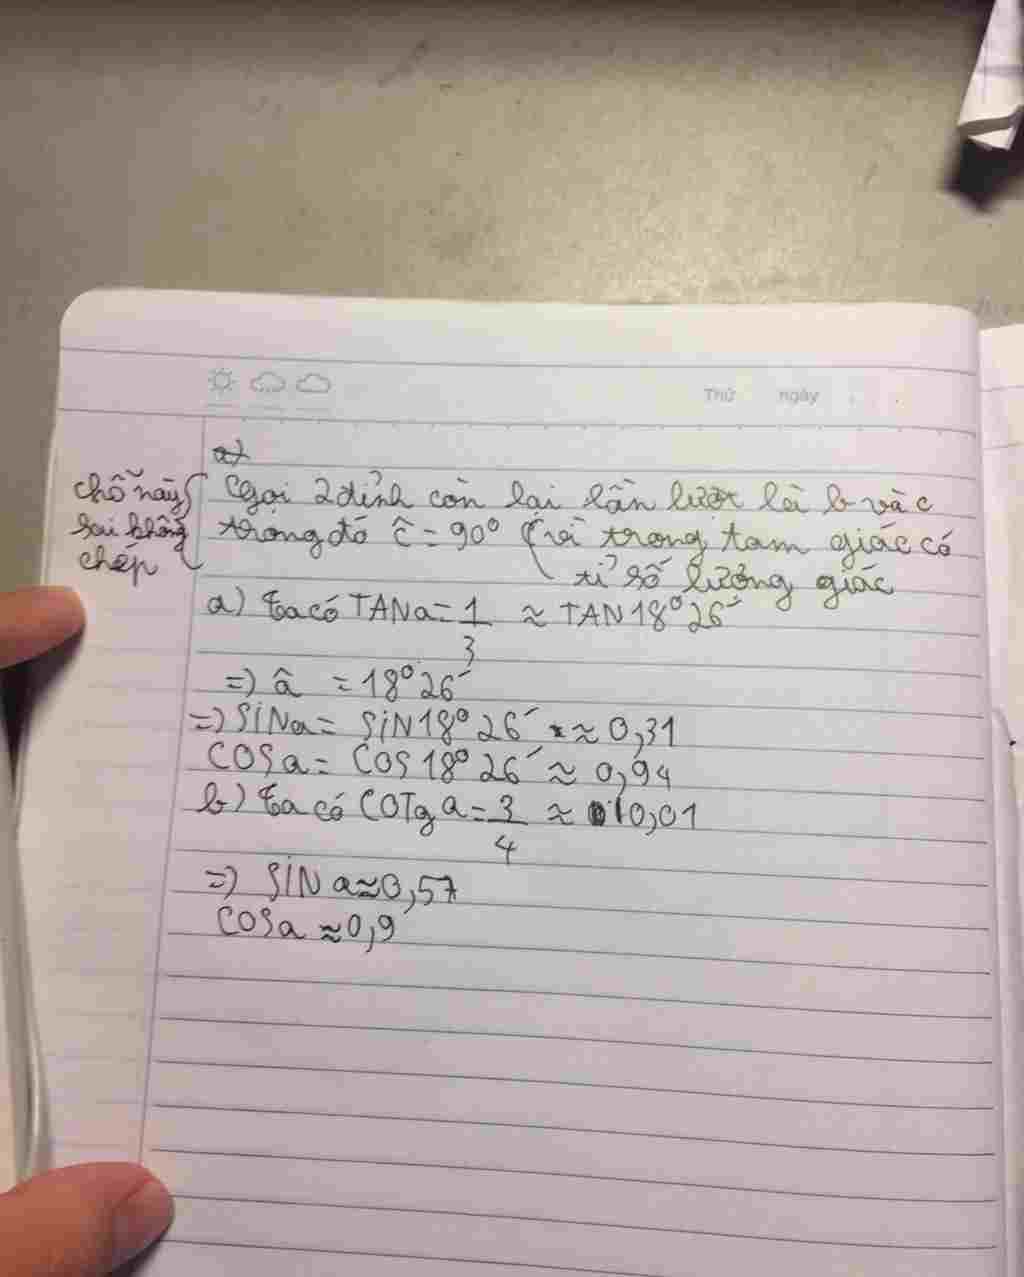 Thứ ngày
a)
chỗ này sai không chép
Gọi 2 đỉnh còn lại lần lượt là b và c
trong đó ĉ = 90° (vì trong tam giác có
tỉ số lượng giác
a) ta có TAN a = 1/3 ≈ TAN 18°26'
=> â = 18°26'
=> SiN a = SiN 18°26' ≈ 0,31
COS a = COS 18°26' ≈ 0,94
b) ta có COTg a = 3/4 ≈ 0,01
=> SiN a ≈ 0,57
COS a ≈ 0,9